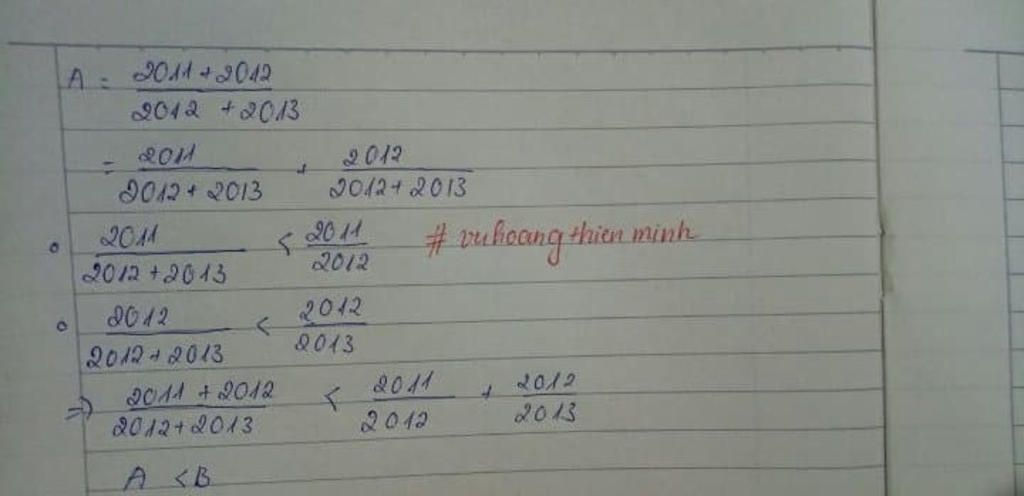 A = 2011+2012 / 2012 + 2013
= 2011 / 2012+2013 + 2012 / 2012+2013
2011 / 2012+2013 < 2011 / 2012 # vuhoangthien minh
2012 / 2012+2013 < 2012 / 2013
=> 2011 + 2012 / 2012+2013 < 2011 / 2012 + 2012 / 2013
A < B